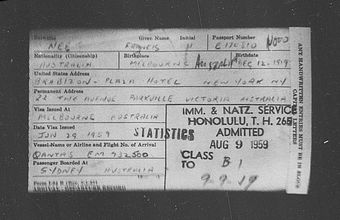 Surname Given Name Initial Passport Number
NEE FRANCIS E170510
Nationality (Citizenship) Birthplace Birthdate
AUSTRALIA MELBOURNE Australia DEC 12. 1919
United States Address
BRABIZON - PLAZA HOTEL NEW YORK NY
Permanent Address
22 THE AVENUE PARKVILLE VICTORIA AUSTRALIA
Visa Issued at
MELBOURNE AUSTRALIA
Date Visa Issued
JUN 29 1959
Vessel-Name or Airline and Flight No. of Arrival
QANTAS EM 532/580
Passenger Boarded At
SYDNEY AUSTRALIA
STATISTICS
IMM. & NATZ. SERVICE
HONOLULU, T. H. 265
ADMITTED
AUG 9 1959
CLASS B1
TO
9-9-59
ANY HANDWRITTEN ENTRIES MUST BE IN BLOCK
CAPITAL LETTERS